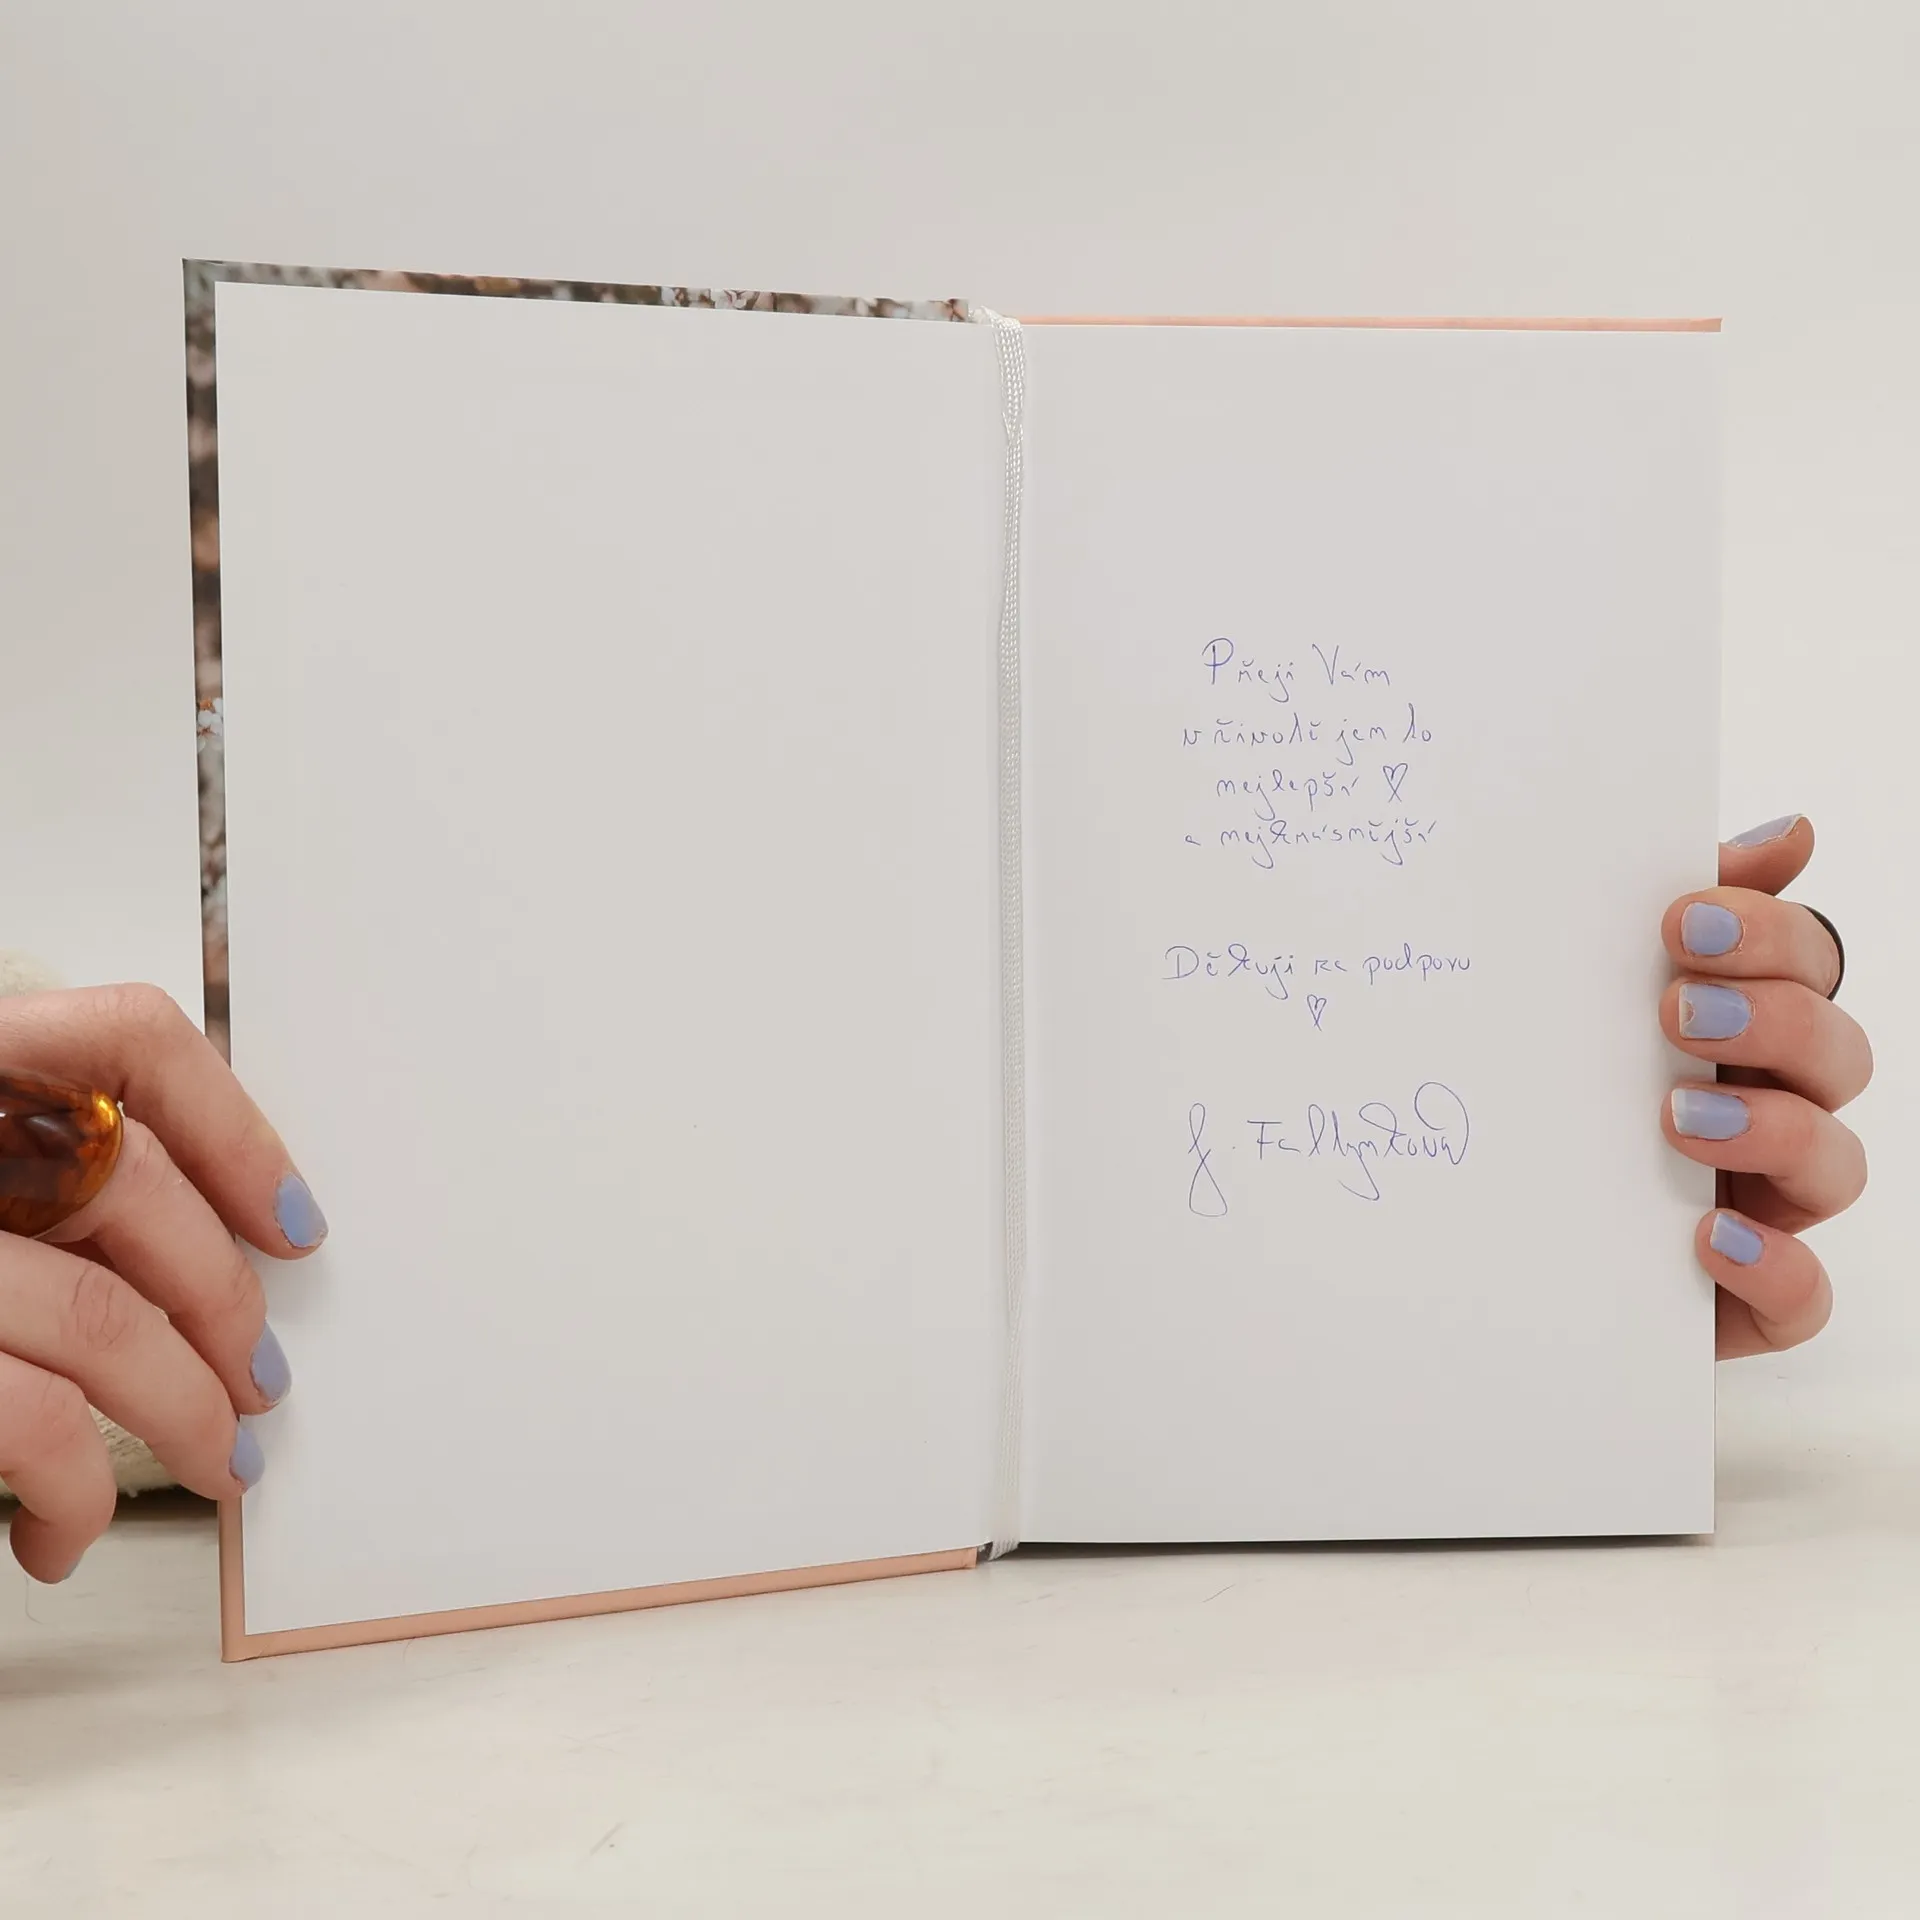 Přeji Vám
v životě jen to
nejlepší ♡
a nejkrásnější
Děkuji za podporu
♡